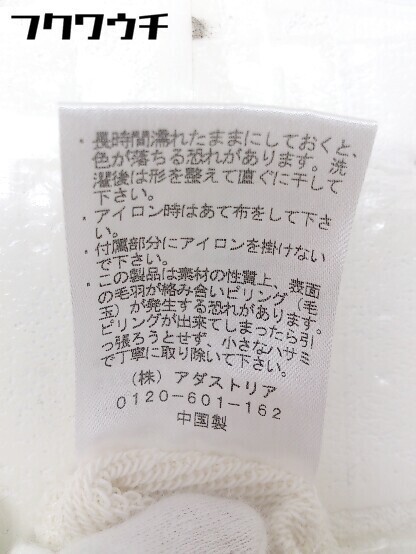 フクワウチ
・長時間濡れたままにしておくと、
色が落ちる恐れがあります。洗
濯後は形を整えて直ぐに干して
下さい。
・アイロン時はあて布をして下さ
い。
・付属部分にアイロンを掛けない
で下さい。
・この製品は素材の性質上、表面
の毛羽が絡み合いピリング（毛
玉）が発生する恐れがあります。
ピリングが出来てしまったら引
っ張ろうとせず、小さなハサミ
で丁寧に取り除いて下さい。
（株）アダストリア
0120-601-162
中国製